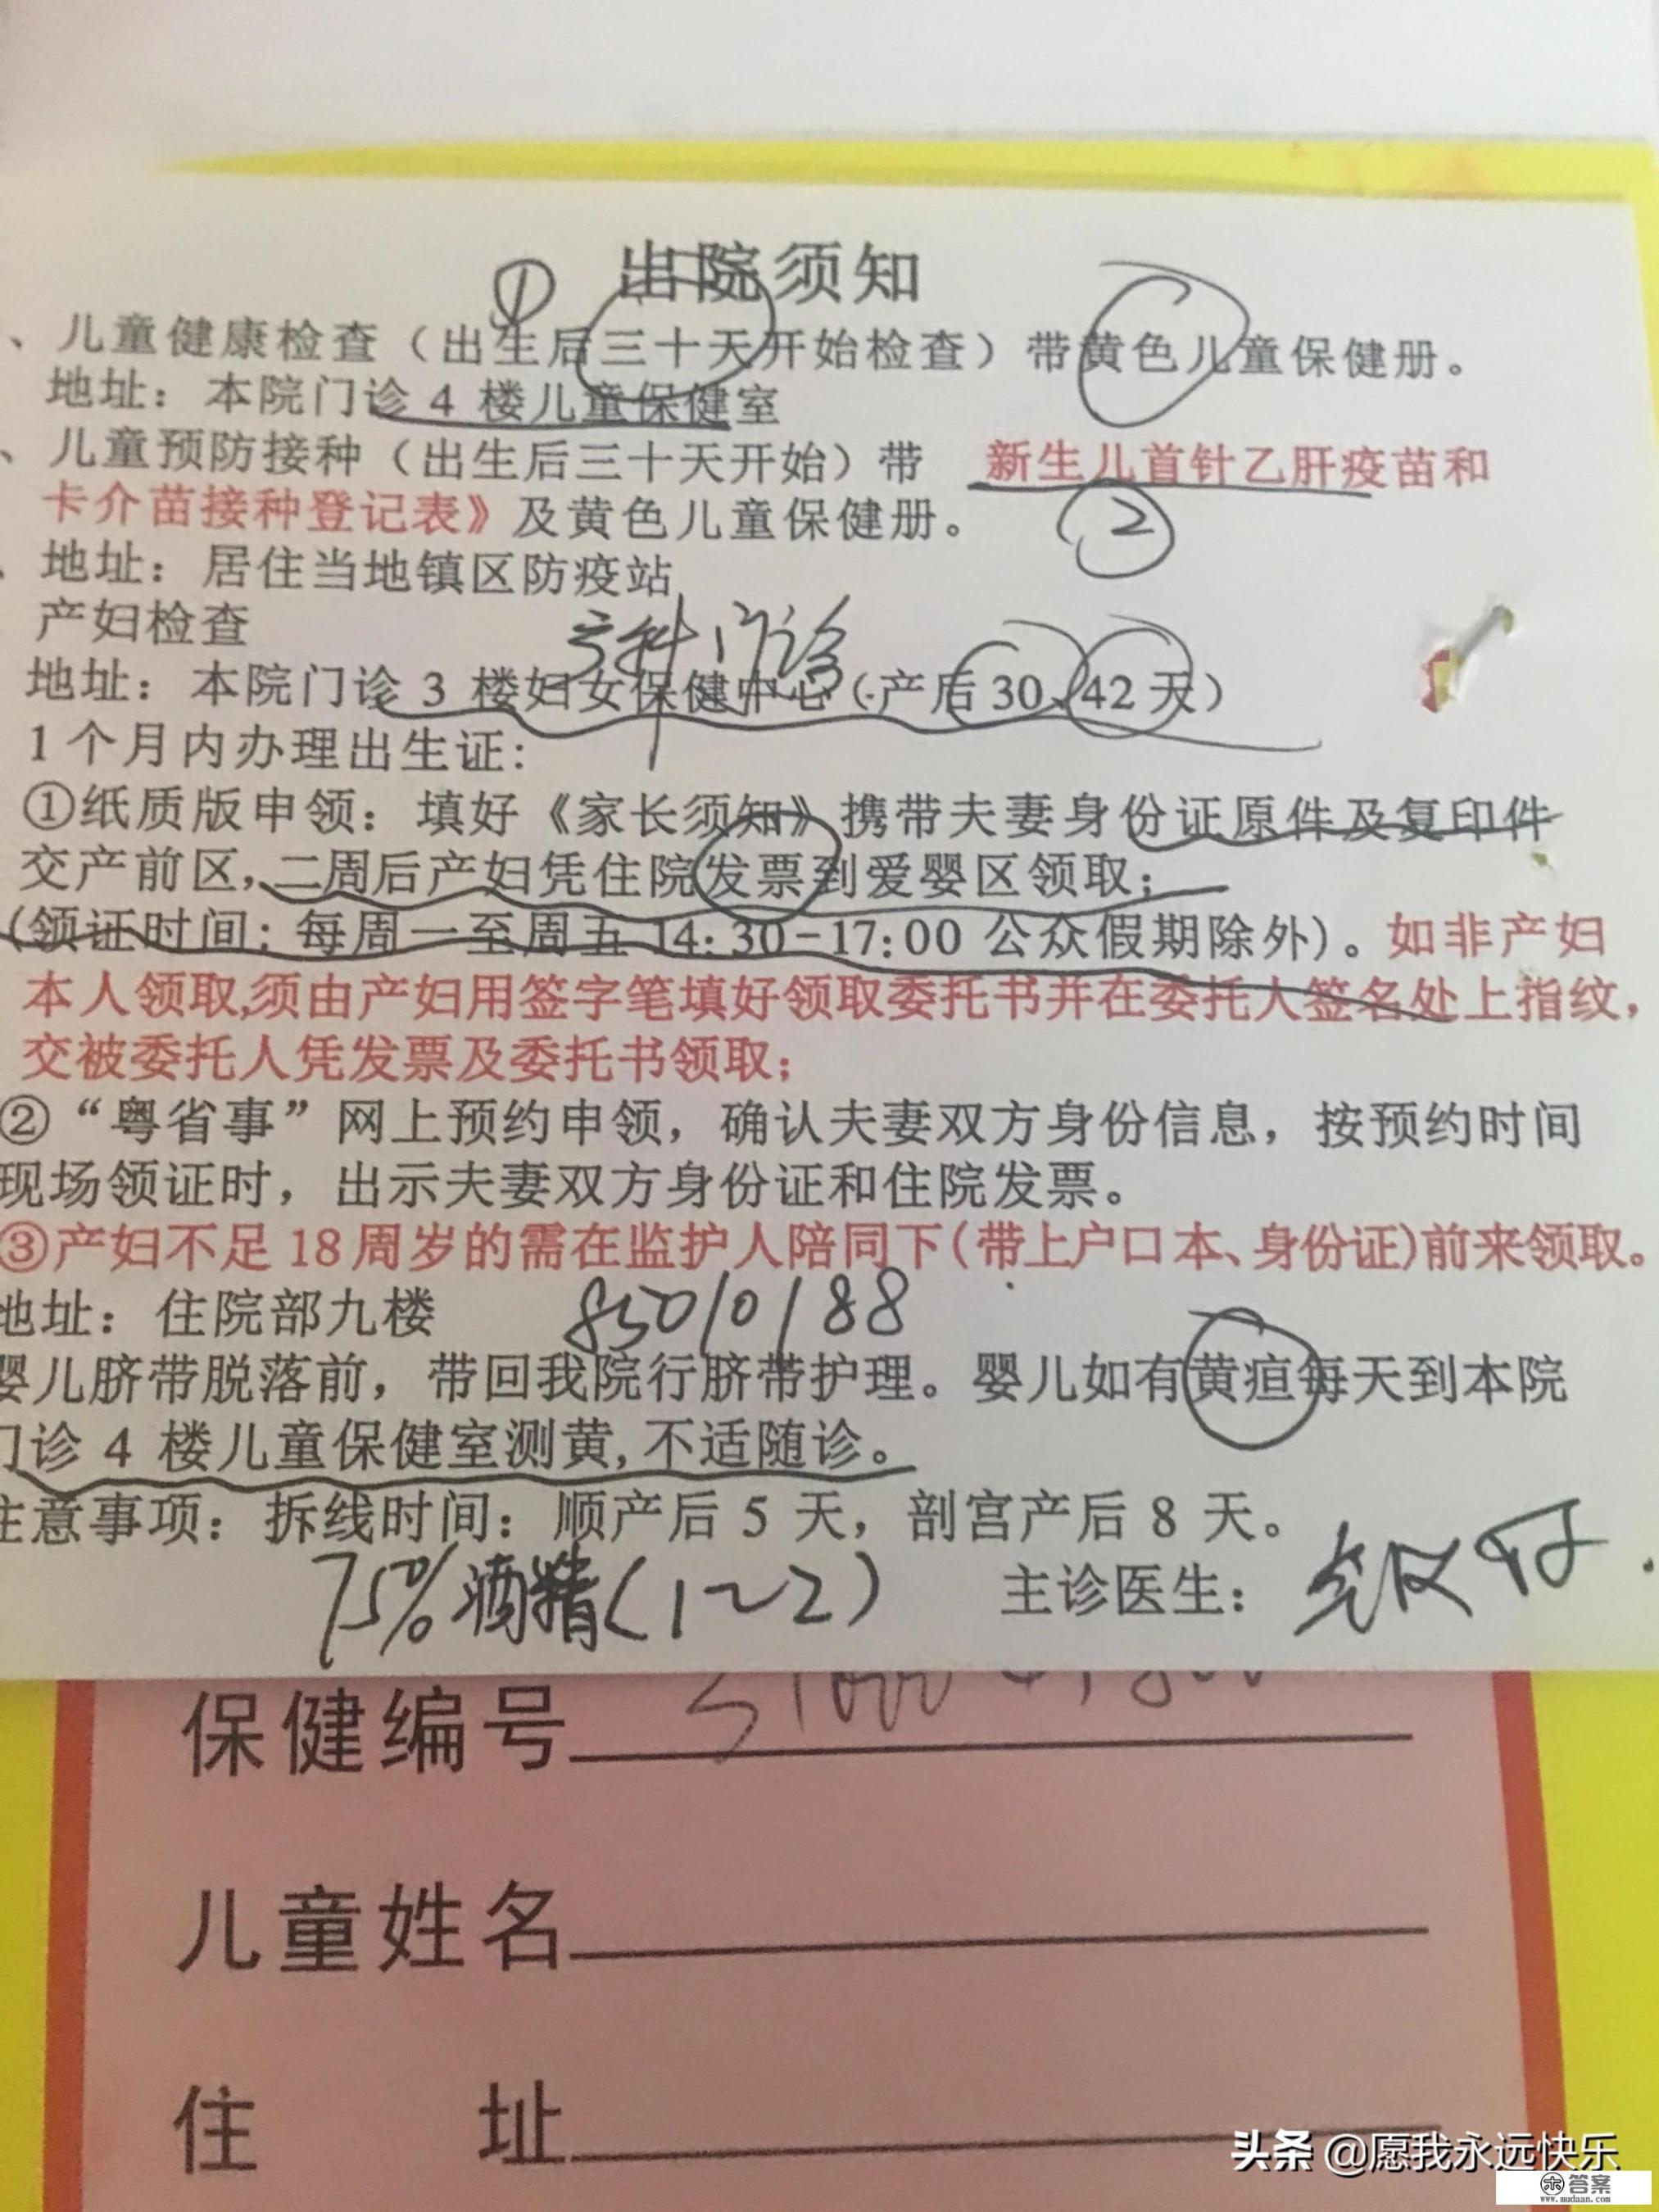 出院须知
①
、儿童健康检查（出生后三十天开始检查）带黄色儿童保健册。
地址：本院门诊 4 楼儿童保健室
、儿童预防接种（出生后三十天开始）带 新生儿首针乙肝疫苗和
卡介苗接种登记表》及黄色儿童保健册。
②
地址：居住当地镇区防疫站
产妇检查
产科门诊
地址：本院门诊 3 楼妇女保健中心（产后 30、42 天）
1 个月内办理出生证：
①纸质版申领：填好《家长须知》携带夫妻身份证原件及复印件
交产前区，二周后产妇凭住院发票到爱婴区领取；
（领证时间：每周一至周五 14：30-17：00 公众假期除外）。如非产妇
本人领取,须由产妇用签字笔填好领取委托书并在委托人签名处上指纹，
交被委托人凭发票及委托书领取；
②“粤省事”网上预约申领，确认夫妻双方身份信息，按预约时间
现场领证时，出示夫妻双方身份证和住院发票。
③产妇不足 18 周岁的需在监护人陪同下（带上户口本、身份证）前来领取。
地址：住院部九楼 85010188
婴儿脐带脱落前，带回我院行脐带护理。婴儿如有黄疸每天到本院
门诊 4 楼儿童保健室测黄,不适随诊。
注意事项：拆线时间：顺产后 5 天，剖宫产后 8 天。
75%酒精（1~2） 主诊医生：
保健编号
儿童姓名
住 址
头条 @愿我永远快乐
答案
www.mudaan.com